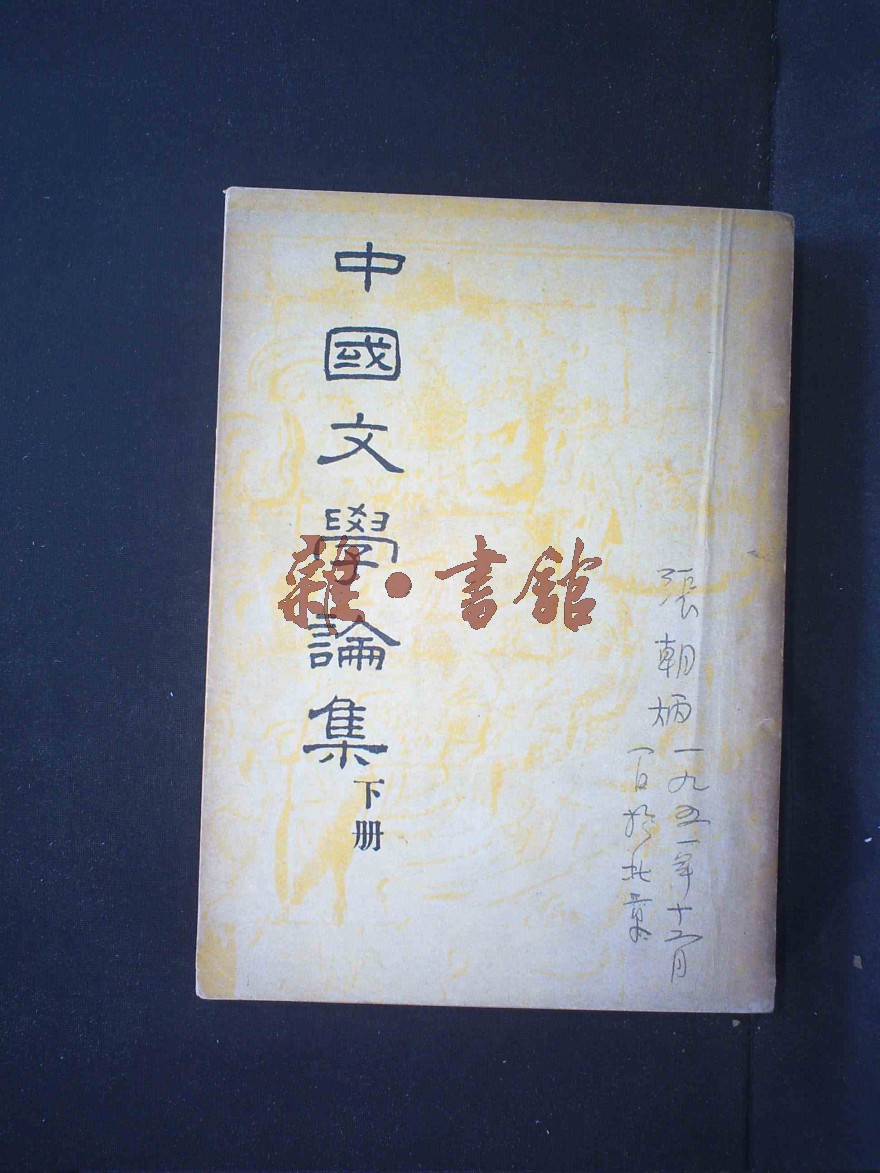 中國文學論集
下册
張朝炳
一九五一年十二月
一日於北京
雜·書館